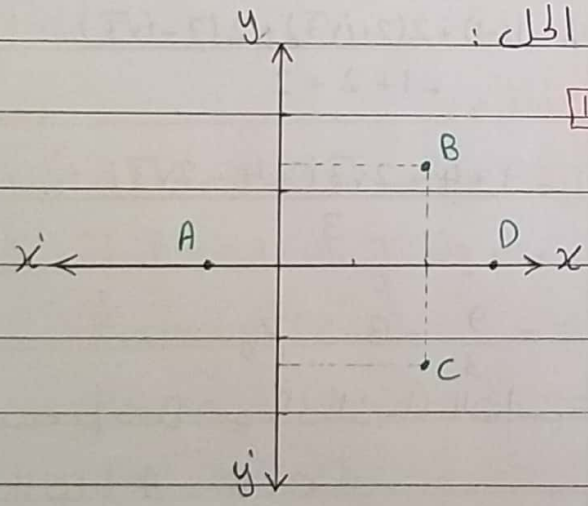 الحل :
y
1
B
A
D
x'
x
C
y'